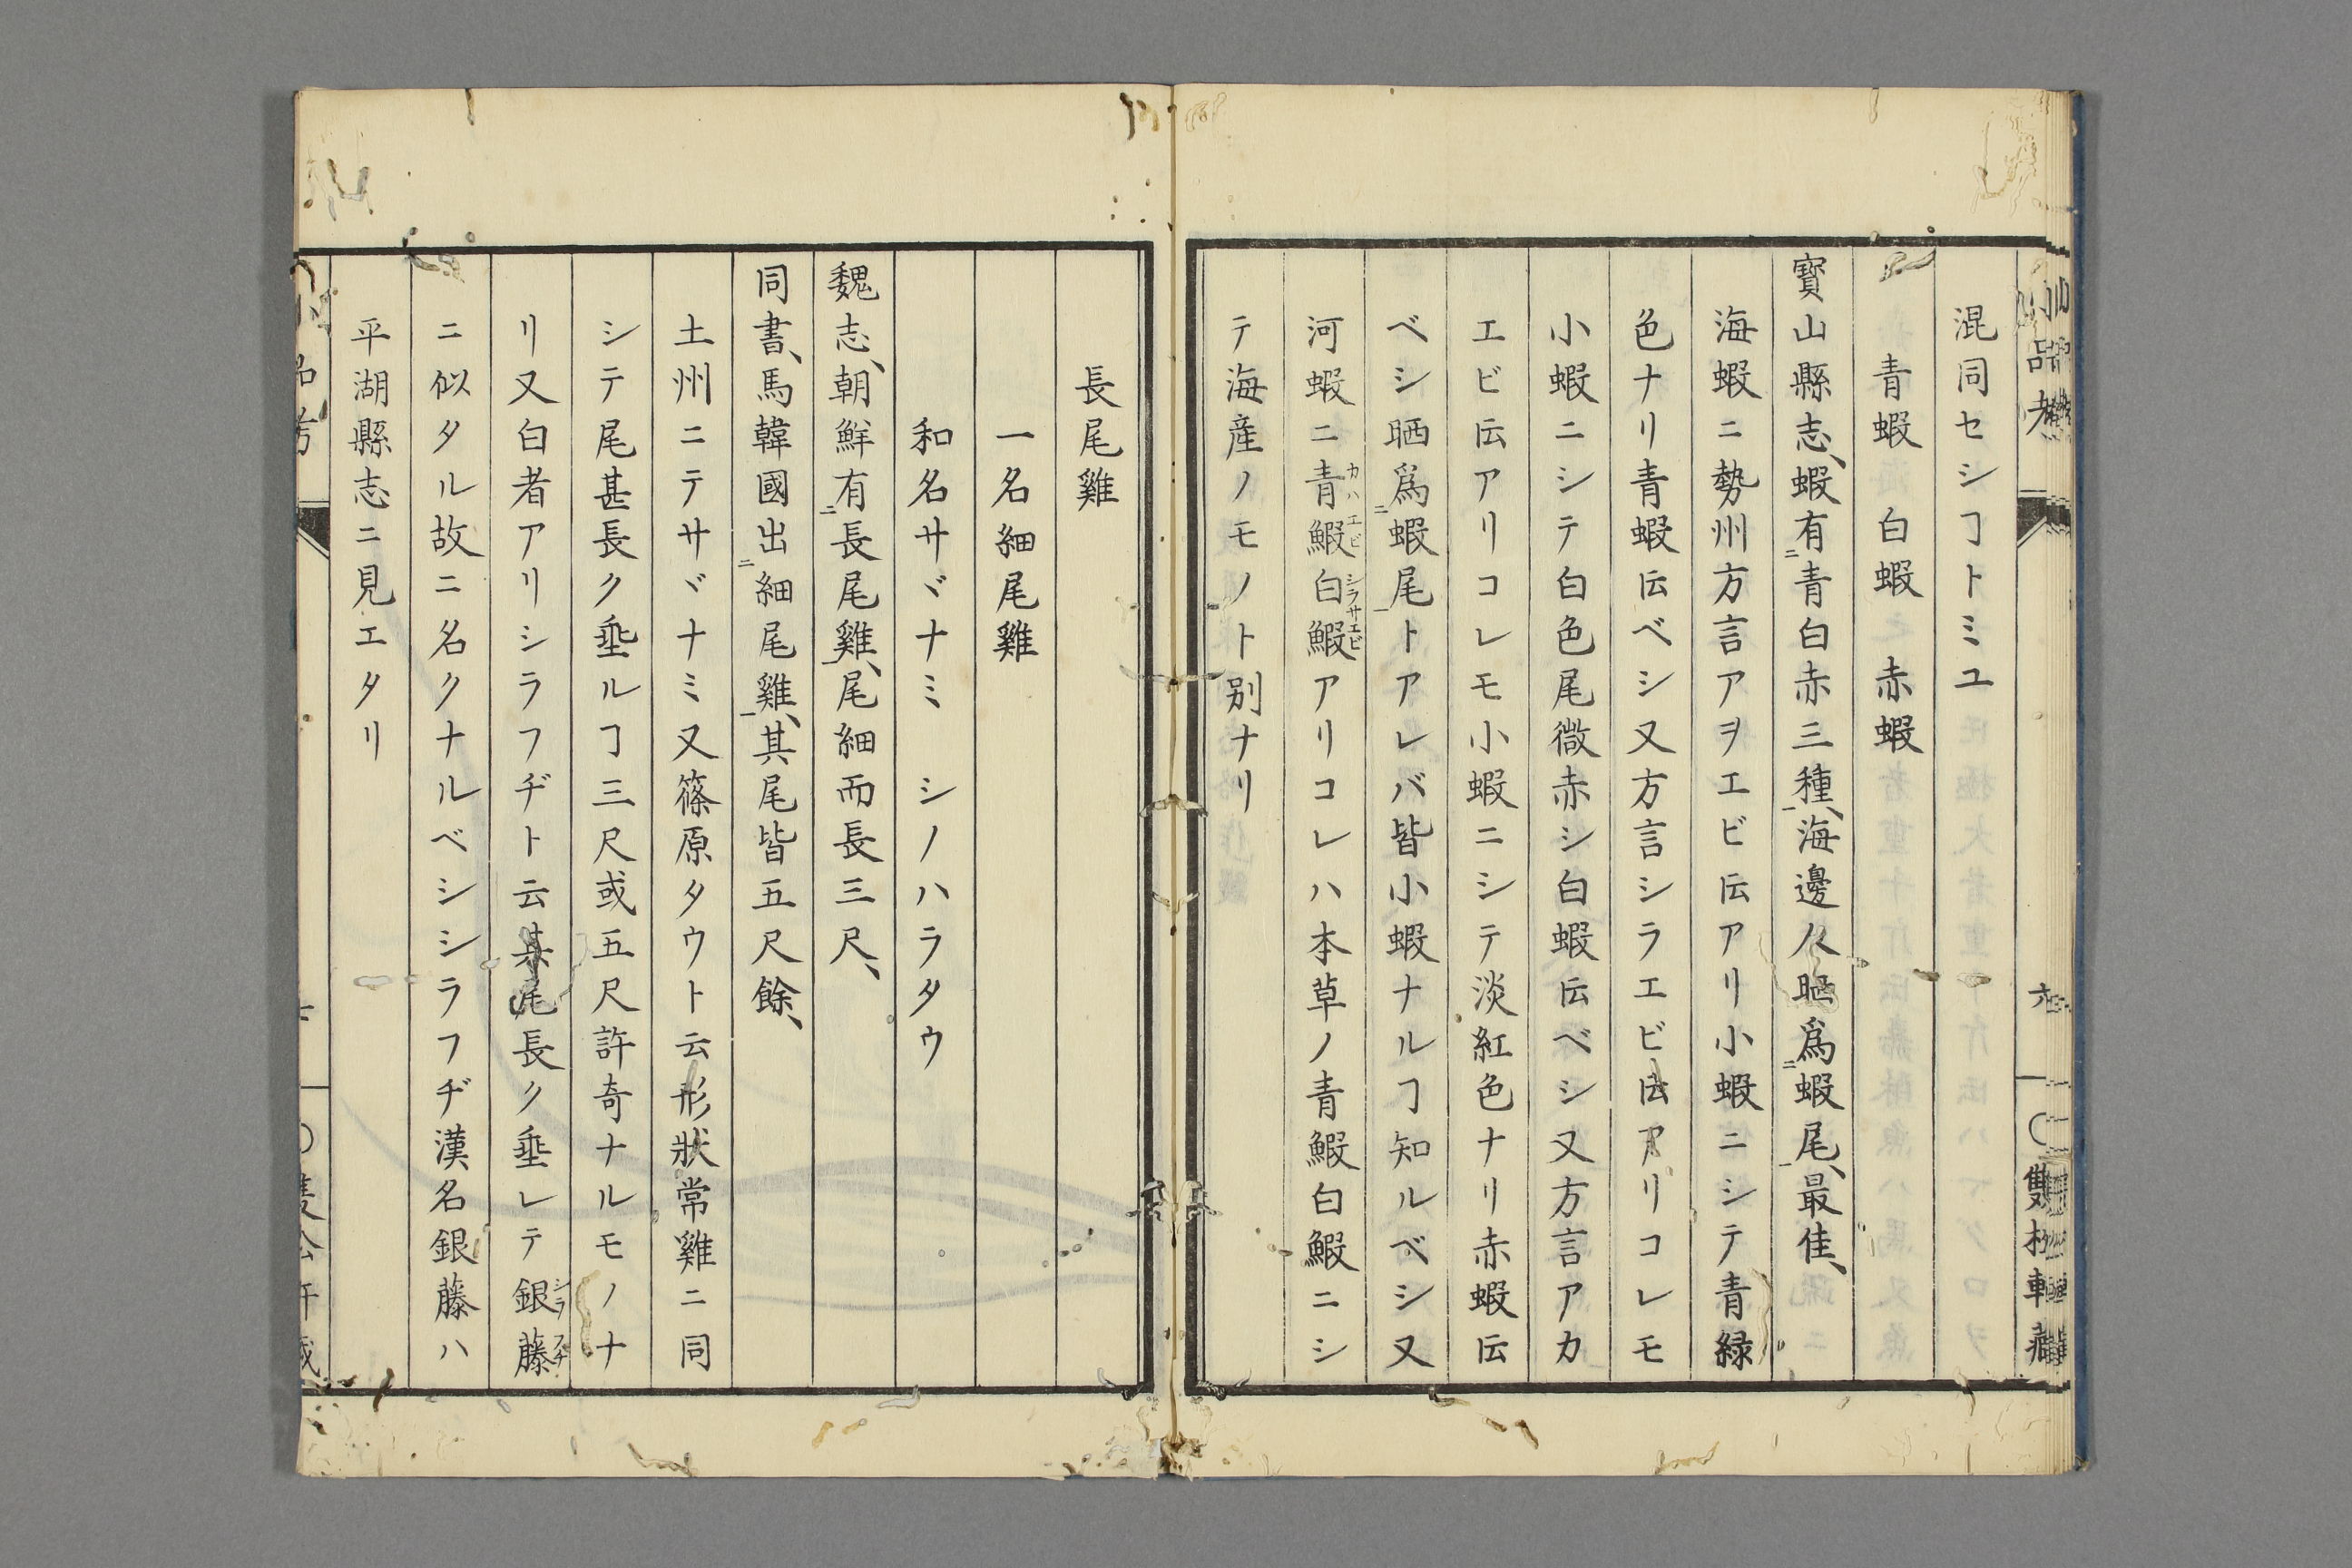 混同セシヿトミユ
青蝦　白蝦　赤蝦
寳山縣志、蝦有二青白赤三種一、海邊人晒爲二蝦尾一、最佳、
海蝦ニ勢州方言アヲエビ伝アリ小蝦ニシテ青緑
色ナリ青蝦伝ベシ又方言シラエビ伝アリコレモ
小蝦ニシテ白色尾微赤シ白蝦伝ベシ又方言アカ
エビ伝アリコレモ小蝦ニシテ淡紅色ナリ赤蝦伝
ベシ晒爲二蝦尾一トアレバ皆小蝦ナルヿ知ルベシ又
河蝦ニ青鰕カハエビ白鰕シラサエビアリコレハ本草ノ青鰕白鰕ニシ
テ海産ノモノト别ナリ
長尾雞
一名細尾雞
和名サヾナミ　シノハラタウ
魏志、朝鮮有二長尾雞一、尾細而長三尺、
同書、馬韓國出二細尾雞一、其尾皆五尺餘、
土州ニテサヾナミ又篠原タウト云形狀常雞ニ同
シテ尾甚長ク埀ルヿ三尺或五尺許奇ナルモノナ
リ又白者アリシラフヂト云其尾長ク埀レテ銀藤シラフヂ
ニ似タル故ニ名クナルベシシラフヂ漢名銀藤ハ
平湖縣志ニ見エタリ